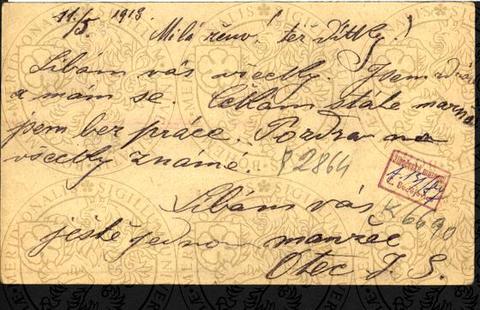 11./5. 1913.
Milá ženo! též dítky!
Líbám vás všecky. Jsem zdráv
a mám se. Čekám stále marně
jsem bez práce. Pozdrav na
všecky známé. P2864
Líbám vás
ještě jednou manžel K6690
Otec J. S.